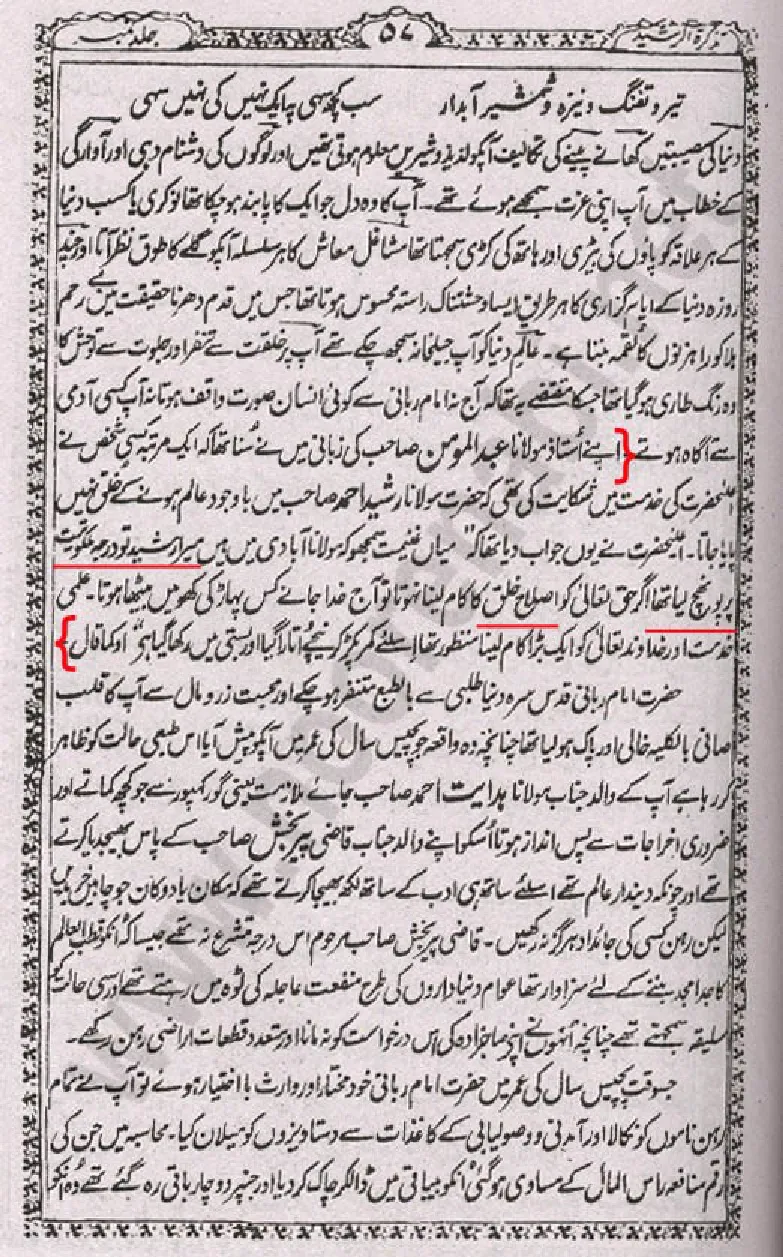 تذکرۃ الرشید ۵۷ جلد نمبر
تیر و تفنگ و نیزہ و شمشیر آبدار سب کچھ سہی پہ ایک نہیں کی نہیں سہی
دنیا کی مصیبتیں کھانے پینے کی تکالیف آپکو لذیذ و شیریں معلوم ہوتی تھیں اور لوگوں کی دشنام دہی اور آوارگی
کے خطاب میں آپ اپنی عزت سمجھے ہوئے تھے۔ آپ کا وہ دل جو ایک کا پابند ہو چکا تھا نوکری یا کسب دنیا
کے ہر علاقہ کو پاؤں کی بیڑی اور ہاتھ کی کڑی سمجھتا تھا مشاغل معاش کا ہر سلسلہ آپکو گلے کا طوق نظر آتا اور چند
روزہ دنیا کے ایام گزاری کا ہر طریق ایسا وحشتناک راستہ محسوس ہوتا تھا جس میں قدم دھرنا حقیقت میں بے رحم
ہلاکو راہزنوں کا لقمہ بننا ہے۔ عالم دنیا کو آپ جیلخانہ سمجھ چکے تھے آپ پر خلقت سے تنفر اور جلوت سے توحش کا
وہ رنگ طاری ہو گیا تھا جسکا مقتضے یہ تھا کہ آج نہ امام ربانی سے کوئی انسان صورت واقف ہوتا نہ آپ کسی آدمی
سے آگاہ ہوتے { اپنے اُستاذ مولانا عبدالمومن صاحب کی زبانی میں نے سُنا تھا کہ ایک مرتبہ کسی شخص نے
اعلیٰحضرت کی خدمت میں شکایت کی تھی کہ حضرت مولانا رشید احمد صاحب میں باوجود عالم ہونے کے خلق نہیں
پایا جاتا۔ اعلیٰحضرت نے یوں جواب دیا تھا کہ "میاں غنیمت سمجھو کہ مولانا آبادی میں ہیں میرا رشید تو درجہ ملکوتیت
پر پہونچ لیا تھا اگر حق تعالیٰ کو اصلاح خلق کا کام لینا نہوتا تو آج خدا جانے کس پہاڑ کی کھو میں بیٹھا ہوتا۔ علمی
خدمت اور خداوند تعالیٰ کو ایک بڑا کام لینا منظور تھا اسلئے کمر پکڑ کر نیچے اُتارا گیا اور بستی میں رکھا گیا ہی" اوکما قال }
حضرت امام ربانی قدس سرہ دنیا طلبی سے بالطبع متنفر ہو چکے اور محبت زر و مال سے آپ کا قلب
صافی بالکلیہ خالی اور پاک ہو لیا تھا چنانچہ وہ واقعہ جو پچیس سال کی عمر میں آپکو پیش آیا اس طبعی حالت کو ظاہر
کر رہا ہے آپ کے والد جناب مولانا ہدایت احمد صاحب جائے ملازمت یعنی گورکھپور سے جو کچھ کماتے اور
ضروری اخراجات سے پس انداز ہوتا اُسکو اپنے والد جناب قاضی پیر بخش صاحب کے پاس بھیجدیا کرتے
تھے اور چونکہ دیندار عالم تھے اسلئے ساتھ ہی ادب کے ساتھ لکھ بھیجا کرتے تھے کہ مکان یا دوکان جو چاہیں خریدیں
لیکن رہن کسی کی جائداد ہرگز نہ رکھیں۔ قاضی پیر بخش صاحب مرحوم اس درجہ متشرع نہ تھے جیسا کہ انکو قطب العالم
کا جد امجد بننے کے لئے سزاوار تھا عوام دنیاداروں کی طرح منفعت عاجلہ کی ٹوہ میں رہتے تھے اور اسی حالت کو
سلیقہ سمجھتے تھے چنانچہ اُنہوں نے اپنے صاحبزادہ کی اس درخواست کو نہ مانا اور متعدد قطعات اراضی رہن رکھے۔
جسوقت پچیس سال کی عمر میں حضرت امام ربانی خود مختار اور وارث با اختیار ہوئے تو آپ نے تمام
رہن ناموں کو نکالا اور آمدنی و وصولیابی کے کاغذات سے دستاویزوں کو میلان کیا۔ محاسبہ میں جن کی
رقم منافعہ راس المال کے مساوی ہو گئی انکو بیباقی میں ڈالکر چاک کر دیا اور جنپر دو چار باقی رہ گئے تھے وہ